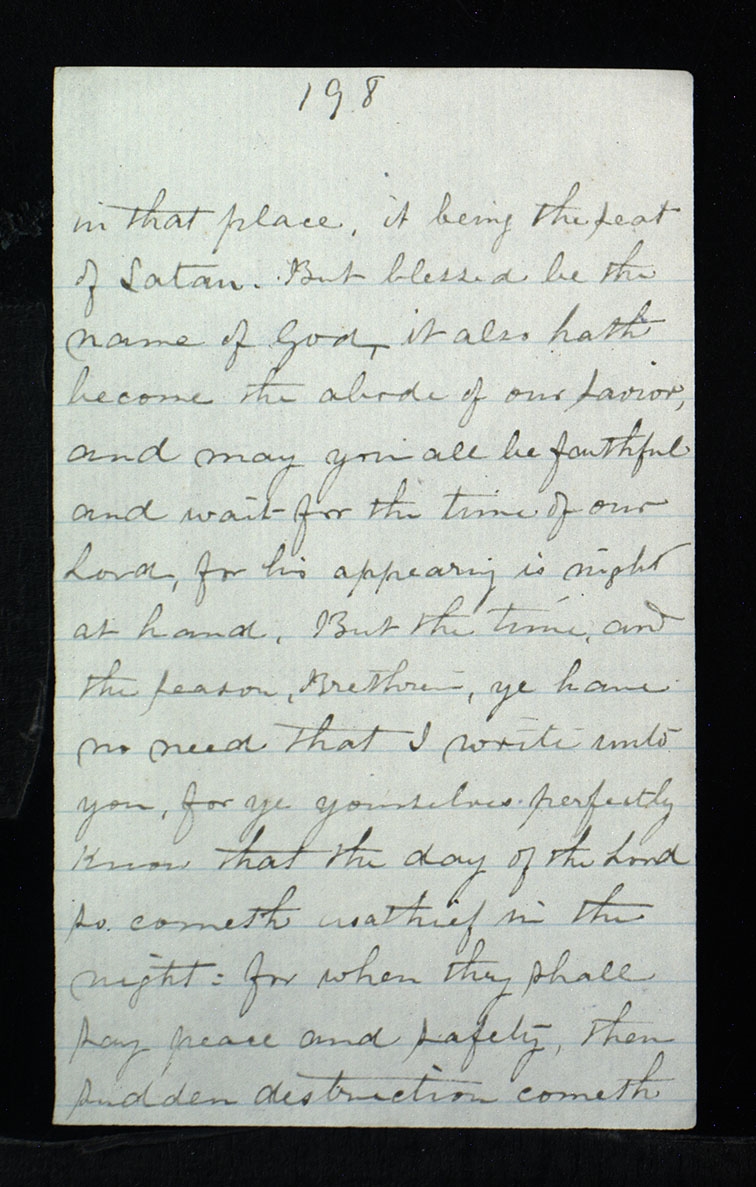 198
in that place, it being the seat
of Satan. But blessed be the
name of God, it also hath
become the abode of our savior,
and may you all be faithful
and wait for the time of our
Lord, for his appearing is night
at hand. But the time, and
the season, Brethren, ye have
no need that I write unto
you, for ye yourselves perfectly
know that the day of the Lord
so cometh as a thief in the
night: for when they shall
say peace and safety, then
sudden destruction cometh